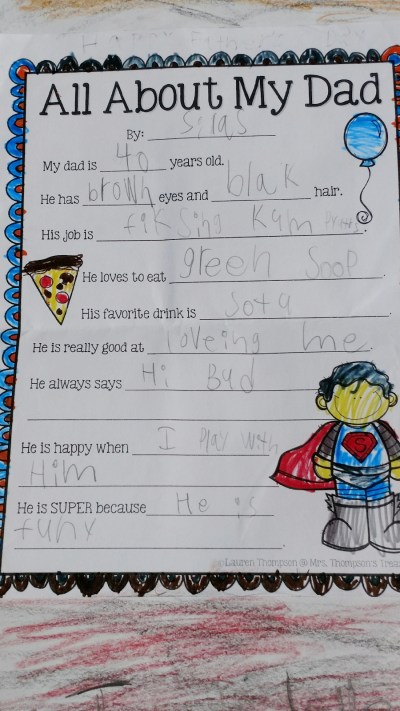 All About My Dad
By: Silas
My dad is 40 years old.
He has brown eyes and blak hair.
His job is fiksing Kum
He loves to eat green Soop.
His favorite drink is Sota.
He is really good at loveing me.
He always says Hi Bud
He is happy when I Play with
Him.
He is SUPER because He is
funy.
Lauren Thompson @ Mrs. Thompson's Treas